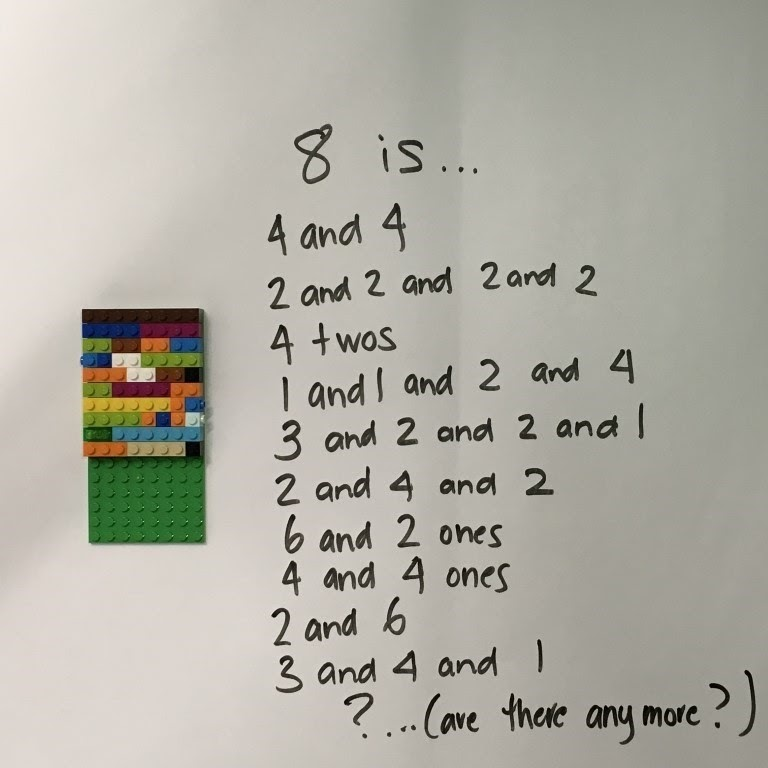 8 is...
4 and 4
2 and 2 and 2 and 2
4 twos
1 and 1 and 2 and 4
3 and 2 and 2 and 1
2 and 4 and 2
6 and 2 ones
4 and 4 ones
2 and 6
3 and 4 and 1
?...(are there any more?)